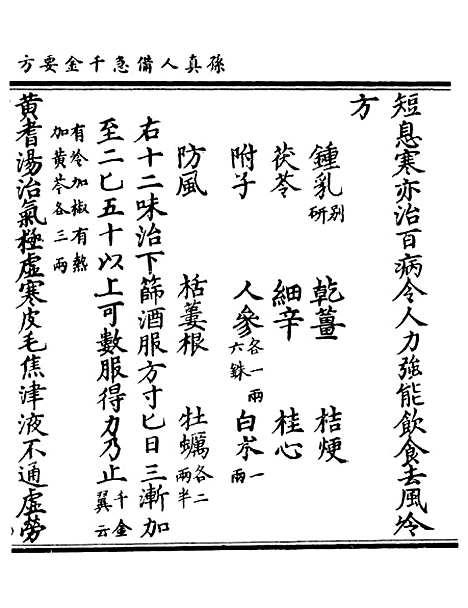 孫真人備急千金要方
短息寒亦治百病令人力強能飲食去風冷
方
鍾乳別研 乾薑 桔梗
茯苓 細辛 桂心
附子 人參各一兩六銖 白朮一兩
防風 栝蔞根 牡蠣各二兩半
右十二味治下篩酒服方寸匕日三漸加
至二匕五十以上可數服得力乃止千金翼云
有冷加椒有熱加黃芩各三兩
黃耆湯治氣極虛寒皮毛焦津液不通虛勞